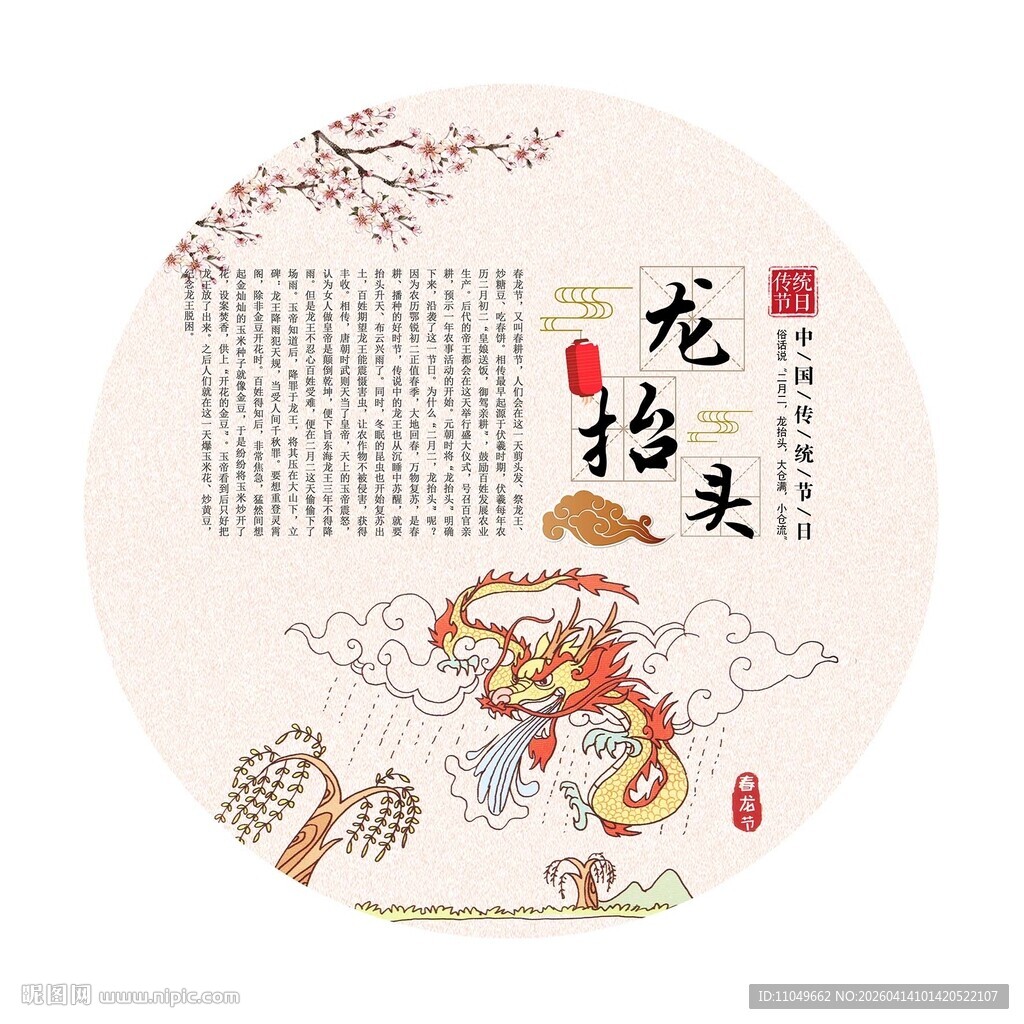 传统
节日
中\国\传\统\节\日
俗话说“二月二，龙抬头，大仓满，小仓流”
龙
抬
头
春龙节，又叫春耕节，人们会在这一天剪头发、祭龙王、
炒糖豆、吃春饼。相传最早起源于伏羲时期，伏羲每年农
历二月初二“皇娘送饭，御驾亲耕”，鼓励百姓发展农业
生产。后代的帝王都会在这天举行盛大仪式，号召百官亲
耕，预示一年农事活动的开始。元朝时将“龙抬头”明确
下来，沿袭了这一节日。为什么“二月二，龙抬头”呢？
因为农历鄂锐初二正值春季，大地回春，万物复苏，是春
耕、播种的好时节，传说中的龙王也从沉睡中苏醒，就要
抬头升天、布云兴雨了。同时，冬眠的昆虫也开始复苏出
土，百姓期望龙王能震慑害虫，让农作物不被侵害，获得
丰收。相传，唐朝时武则天当了皇帝，天上的玉帝震怒，
认为女人做皇帝是颠倒乾坤，便下旨东海龙王三年不得降
雨。但是龙王不忍心百姓受难，便在二月二这天偷偷下了
场雨。玉帝知道后，降罪于龙王，将其压在大山下，立
碑：龙王降雨犯天规，当受人间千秋罪。要想重登灵霄
阁，除非金豆开花时。百姓得知后，非常焦急，猛然间想
起金灿灿的玉米种子就像金豆，于是纷纷将玉米炒开了
花，设案焚香，供上“开花的金豆”。玉帝看到后只好把
龙王放了出来，之后人们就在这一天爆玉米花、炒黄豆，
纪念龙王脱困。
春龙节
昵图网 www.nipic.com
ID:11049662 NO:20260414101420522107